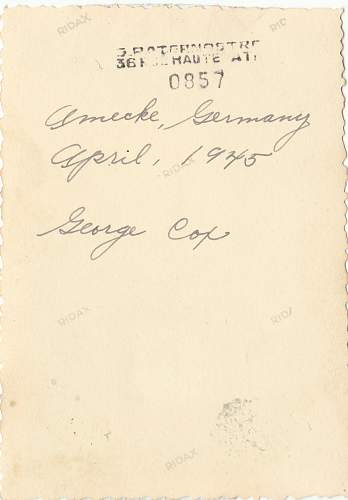 G. PATERNOSTRE
36 HAUTE AT
0857
Amecke, Germany
April, 1945
George Cox
RIDAX
RIDAX
RIDAX
RIDAX
RIDAX
RIDAX